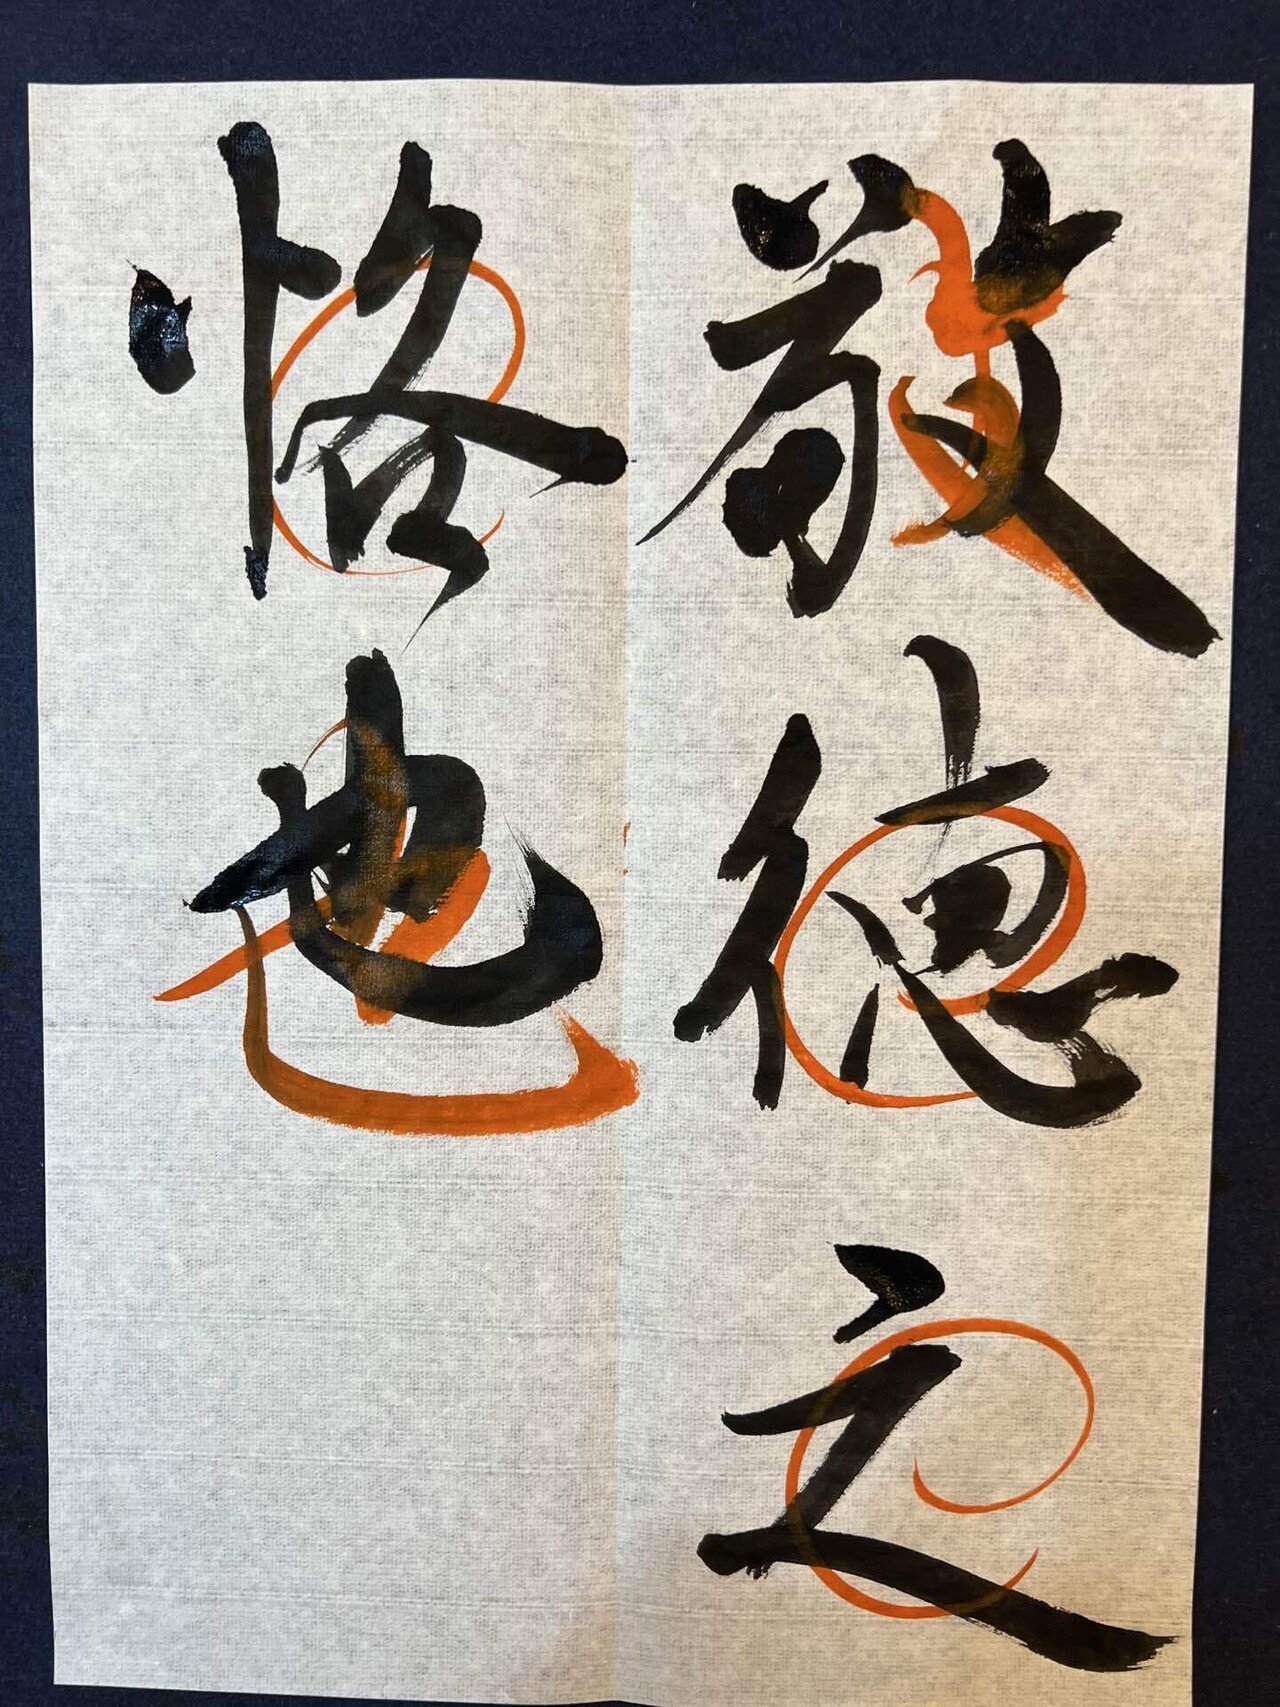 敬德之
恪也